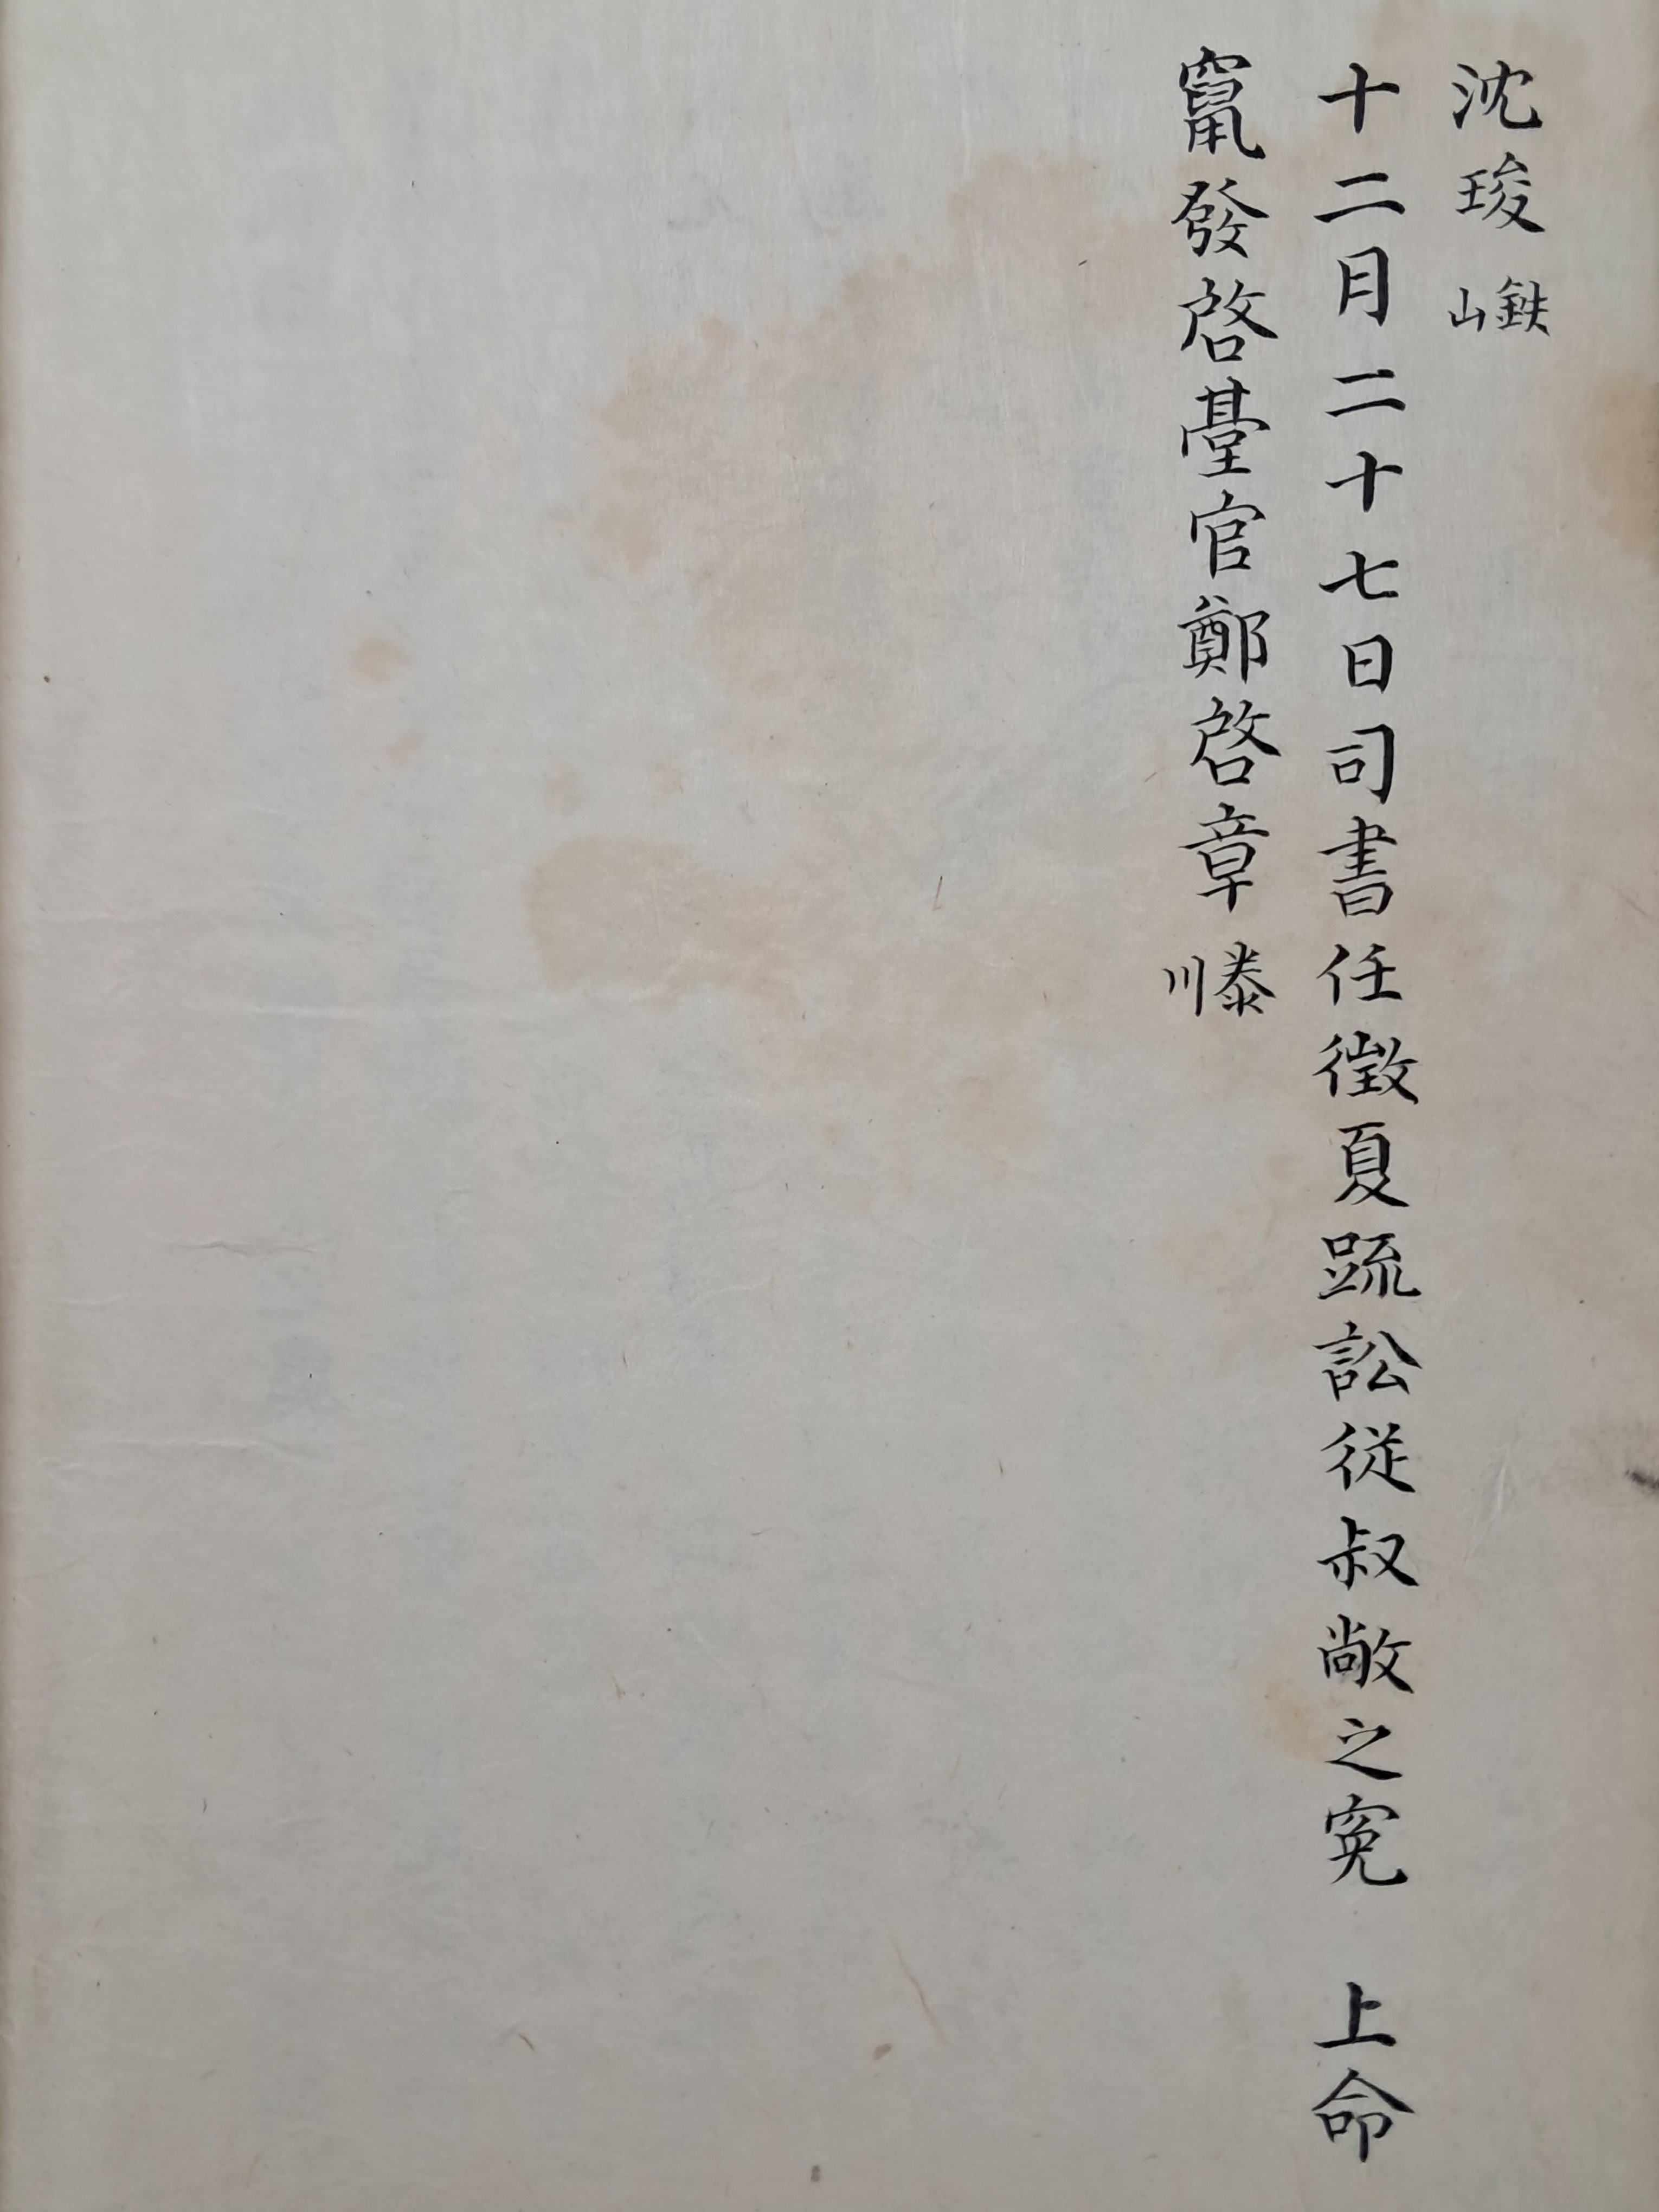 沈㻐鉄山
十二月二十七日司書任徵夏䟽訟従叔敞之寃 上命
竄發啓臺官鄭啓章泰川